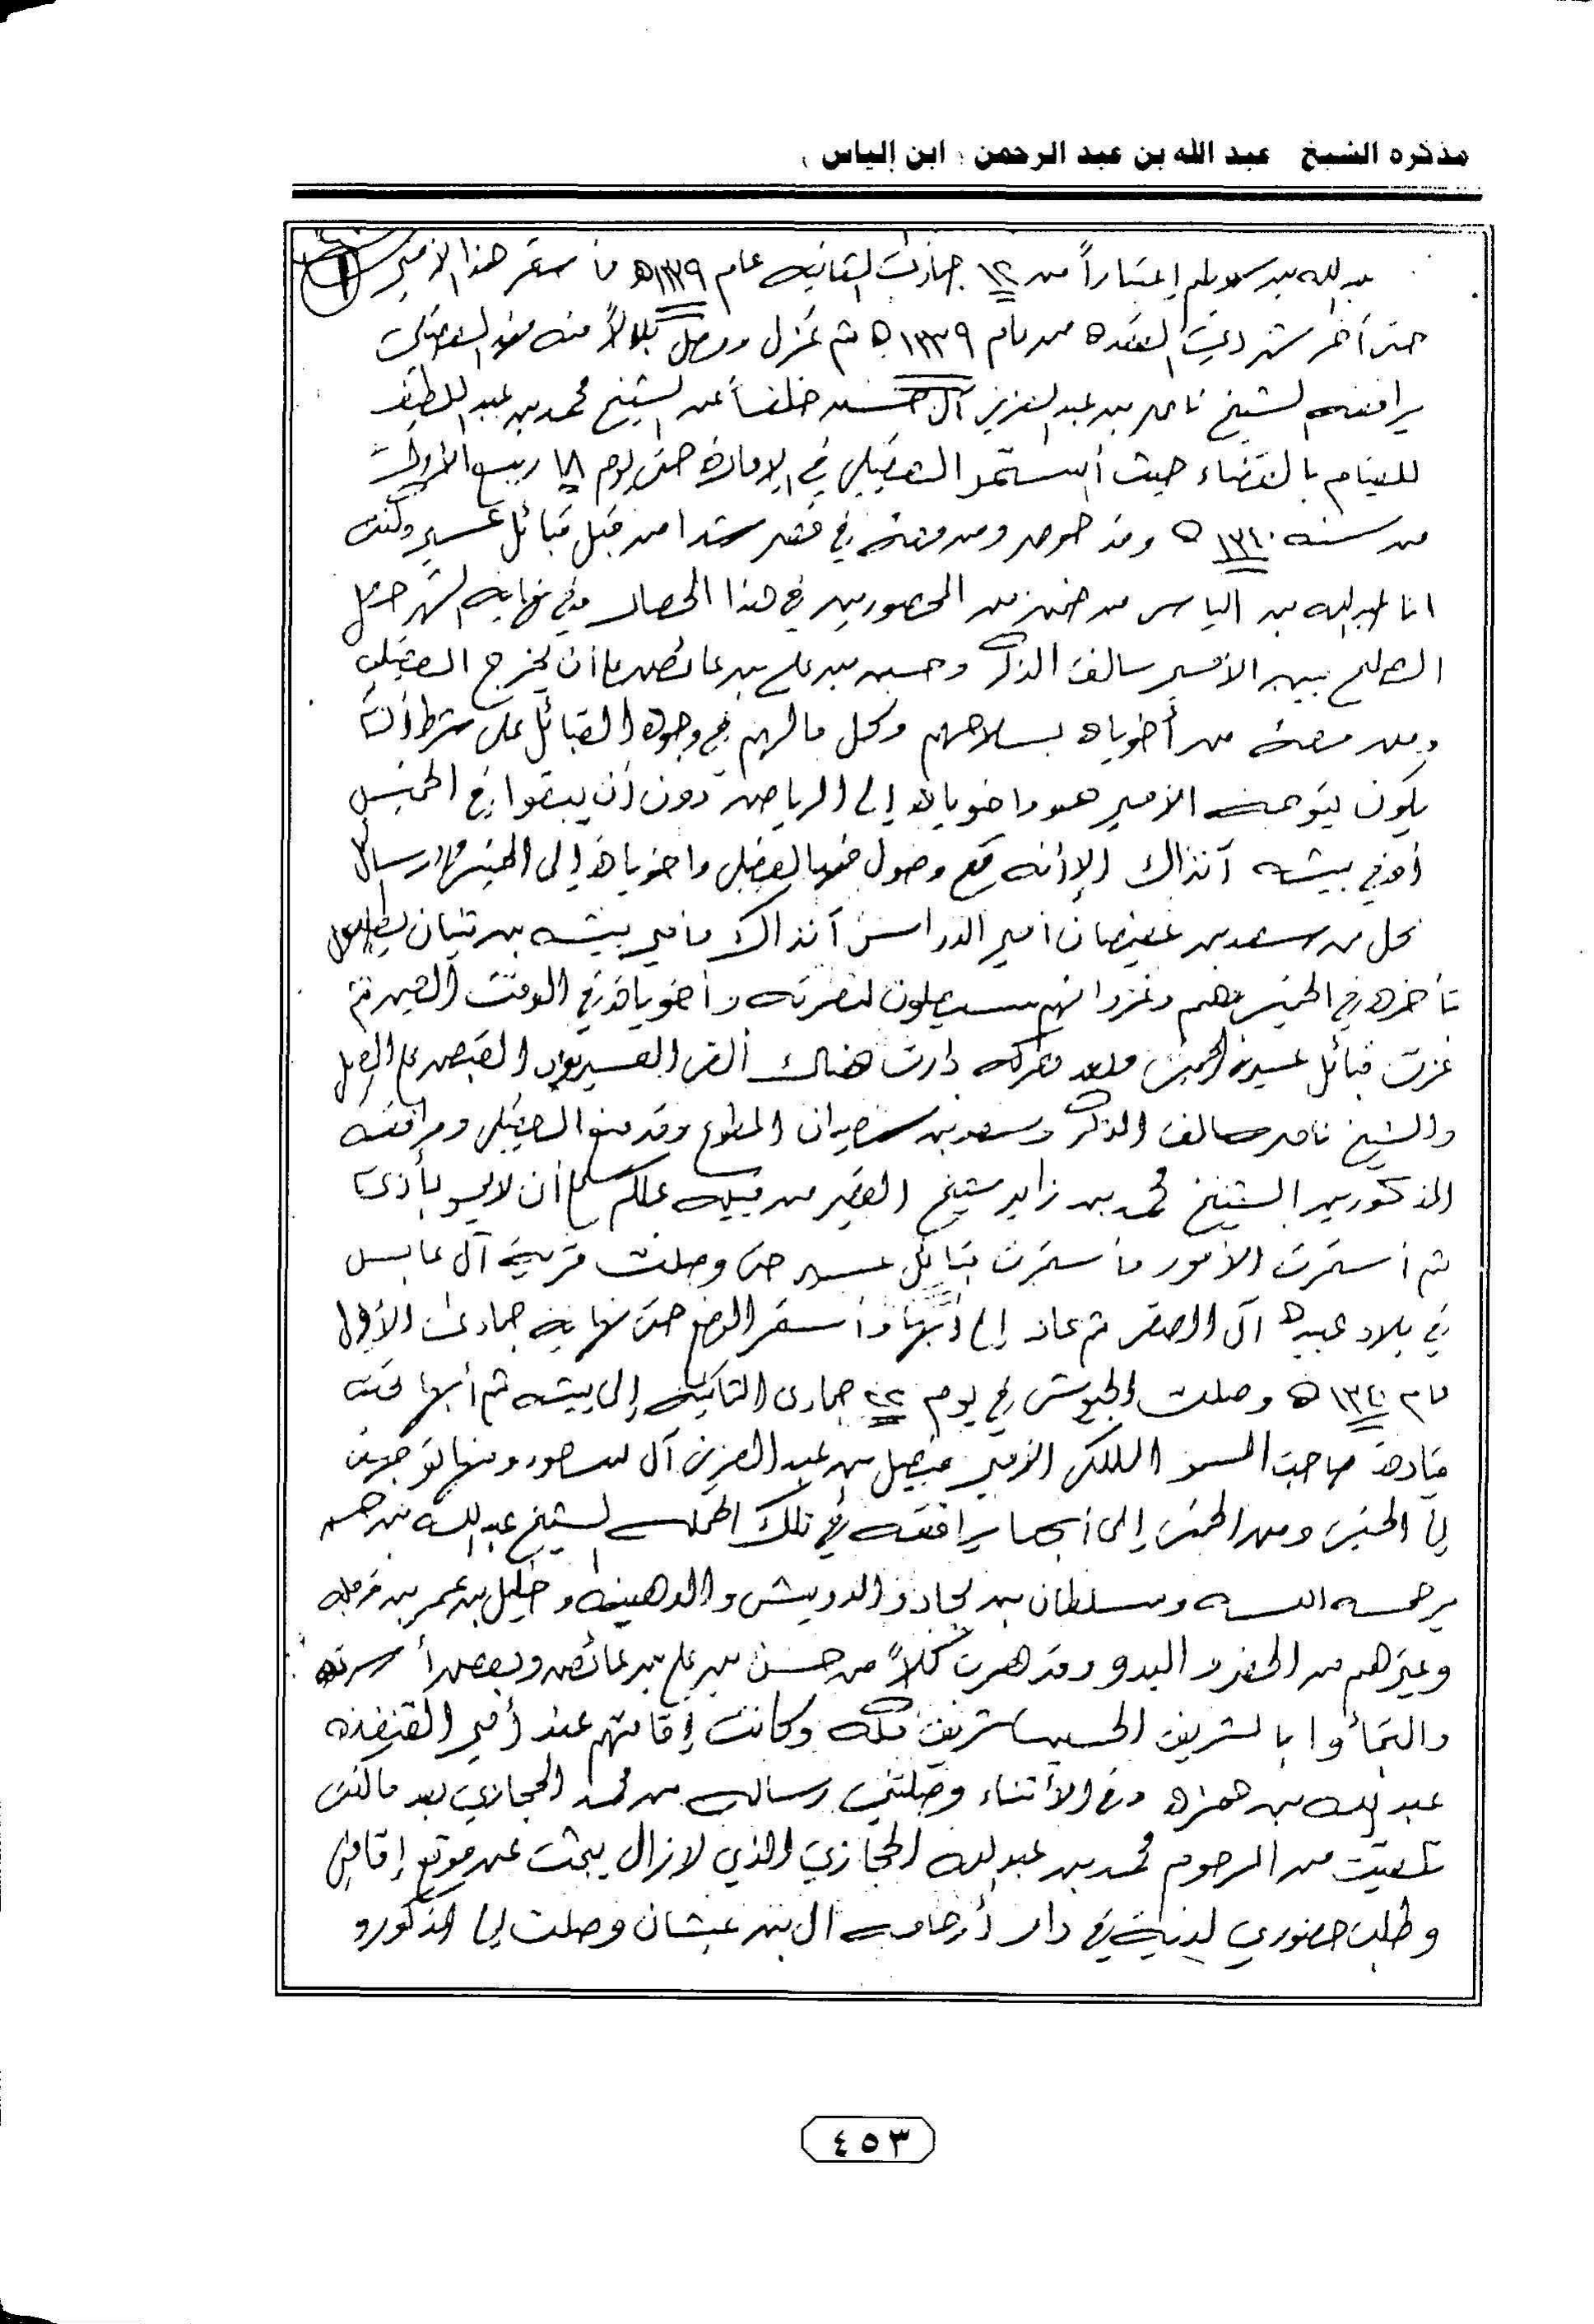 مذكره الشيخ عبد الله بن عبد الرحمن ( ابن إلياس )
عبدالله بن سويلم إعتباراً من ١٢ جمادى الثانيه عام ١٣٣٩هـ فأستمر هذا الأمير
حتى أخر شهر ذي القعده من عام ١٣٣٩هـ ثم عزل ووصل بدلاً منه فهد العقيلي
يرافقه الشيخ ناصر بن عبدالعزيز آل حسين خلفاً عن الشيخ محمد بن عبد اللطيف
للقيام بالقضاء حيث أستمر العقيلي في الإمارة حتى يوم ١٨ ربيع الأول
من سنه ١٣٤٠هـ وقد حوصر ومن معه في قصر شدا من قبل قبائل عسير وكنت
انا عبدالله بن الياس من ضمن من المحصورين في هذا الحصار وفي نهاية الشهر حصل
الصلح بين الأمير سالف الذكر وحسن بن علي بن عائض على أن يخرج العقيلي
ومن معه من أخوياه بسلاحهم وكل مالهم في وجوه القبائل على شرط أن
يكون يتوجه الأمير هو واخوياه إلى الرياض دون أن يبقوا في الخميس
أو في بيشه آنذاك إلا أنه مع وصول فهد العقيلي واخوياه إلى الخميس رسائل
كل من سعد بن عفيصان أمير الدواسر آنذاك وأمير بيشه بن ثنيان
تأخره في الخميس وهم وغزوانهم سيصلون لنصرته وأخوياه في الوقت
غزت قبائل عسير الخميس وبعد معركه دارت هناك ألقى العسيريون القبض على العقيلي
والشيخ ناصر سالف الذكر وسعد بن المطوع وقد منع العقيلي ومرافقيه
المذكورين الشيخ محمد بن زايد شيخ من قبيله علكم على أن لا يأذى
ثم أستمرت الأمور فأستمرت قبائل عسير حتى وصلت قرية آل عابس
في بلاد عبيده آل الصقر ثم عاد إلى أبها وأستمر الوضع حتى نهايه جمادى الأولى
عام ١٣٤٠هـ وصلت الجيوش في يوم ٢٢ جمادى الثانيه إلى بيشه ثم أبها تحت
قيادة صاحب السمو الملكي الأمير فيصل بن عبد العزيز آل سعود ومنها توجهت
إلى الخميس ومن الخميس إلى أبها يرافقه في تلك الحمله الشيخ عبدالله بن حسن
يرحمه الله وسلطان بن بجاد والدويش والدهينه و خليل بن عمر بن قرمله
وغيرهم من الحضر والبدو وقد هرب كلاً من حسن بن علي بن عائض وبعض أسرته
والتجأوا بالشريف الحسين شريف مكه وكانت إقامتهم عند أمير القنفذه
عبدالله بن حمزه وفي الأثناء وصلتني رساله من محمد الحجازي بعد ما كنت
من المرحوم محمد بن عبدالله الحجازي الذي لازال يبحث عن موقع إقامتي
وطلب حضوري لديه في دار أرحامه ال بن عبشان وصلت إلى المذكور و
٤٥٣